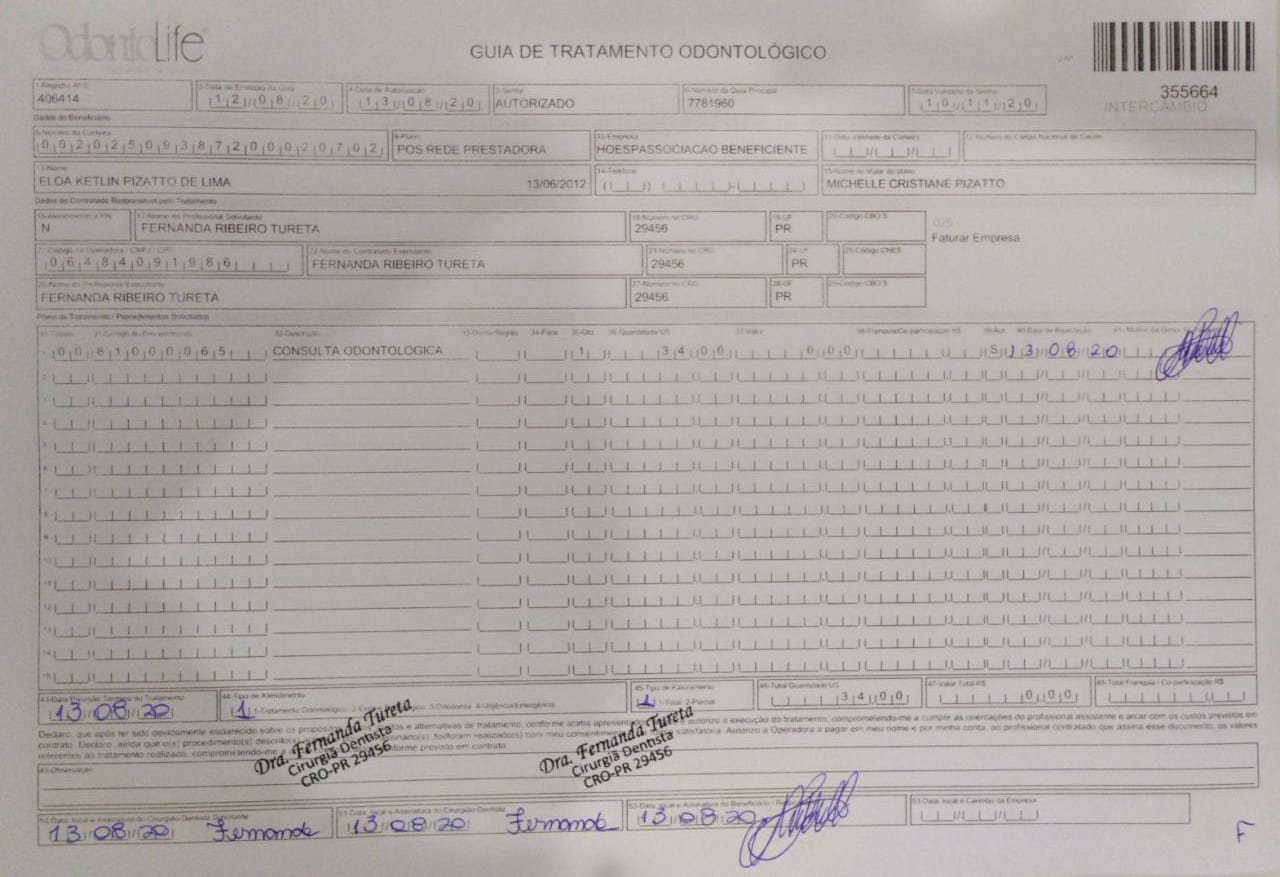 OdontoLife
GUIA DE TRATAMENTO ODONTOLÓGICO
2-Nº
355664
INTERCÂMBIO
1-Registro ANS
406414
3-Data de Emissão da Guia
12/08/20
4-Data de Autorização
13/08/20
5-Senha
AUTORIZADO
6-Número da Guia Principal
7781960
7-Data Validade da Senha
10/11/20
Dados do Beneficiário
8-Número da Carteira
00202509387200020702
9-Plano
POS REDE PRESTADORA
10-Empresa
HOESPASSOCIACAO BENEFICIENTE
11-Data Validade da Carteira
12-Número do Cartão Nacional de Saúde
13-Nome
ELOA KETLIN PIZATTO DE LIMA 13/06/2012
14-Telefone
15-Nome do titular do plano
MICHELLE CRISTIANE PIZATTO
Dados do Contratado Responsável pelo Tratamento
16-Atendimento a RN
N
17-Nome do Profissional Solicitante
FERNANDA RIBEIRO TURETA
18-Número no CRO
29456
19-UF
PR
20-Código CBO S
025-
Faturar Empresa
21-Código na Operadora / CNPJ / CPF
06484091986
22-Nome do Contratado Executante
FERNANDA RIBEIRO TURETA
23-Número no CRO
29456
24-UF
PR
25-Código CNES
26-Nome do Profissional Executante
FERNANDA RIBEIRO TURETA
27-Número no CRO
29456
28-UF
PR
29-Código CBO S
Plano de Tratamento / Procedimentos Solicitados
30-Tabela 31-Código do Procedimento 32-Descrição 33-Dente/Região 34-Face 35-Qtd 36-Quantidade US 37-Valor 38-Franquia/Co-participação R$ 39-Aut 40-Data de Realização
1- 00 81000065 CONSULTA ODONTOLOGICA 1 34 00 0 00 S 13/08/20
2-
3-
4-
5-
6-
7-
8-
9-
10-
11-
12-
13-
14-
15-
43-Data Previsão Término do Tratamento
13/08/20
44-Tipo de Atendimento
1 1-Tratamento Odontológico 3-Ortodontia 4-Urgência/Emergência
45-Tipo de Faturamento
1 1-Total 2-Parcial
46-Total Quantidade US
34 00
47-Valor Total R$
0 00
48-Total Franquia / Co-participação R$
Declaro, que após ter sido devidamente esclarecido sobre os propósitos e alternativas de tratamento, conforme acima autorizo a execução do tratamento, comprometendo-me a cumprir as orientações do profissional assistente e arcar com os custos previstos em
contrato. Declaro, ainda que o(s) procedimento(s) foi/foram realizado(s) com meu consentimento satisfatória. Autorizo a Operadora a pagar em meu nome e por minha conta, ao profissional contratado que assina esse documento, os valores
referentes ao tratamento realizado, comprometendo-me conforme previsto em contrato.
Dra. Fernanda Tureta
Cirurgiã Dentista
CRO-PR 29456
Dra. Fernanda Tureta
Cirurgiã Dentista
CRO-PR 29456
49-Observação
50-Data, local e Assinatura do Cirurgião-Dentista Solicitante
13/08/20 Fernanda
51-Data, local e Assinatura do Cirurgião-Dentista
13/08/20 Fernanda
52-Data, local e Assinatura do Beneficiário
13/08/20
53-Data, local e Carimbo da Empresa
F